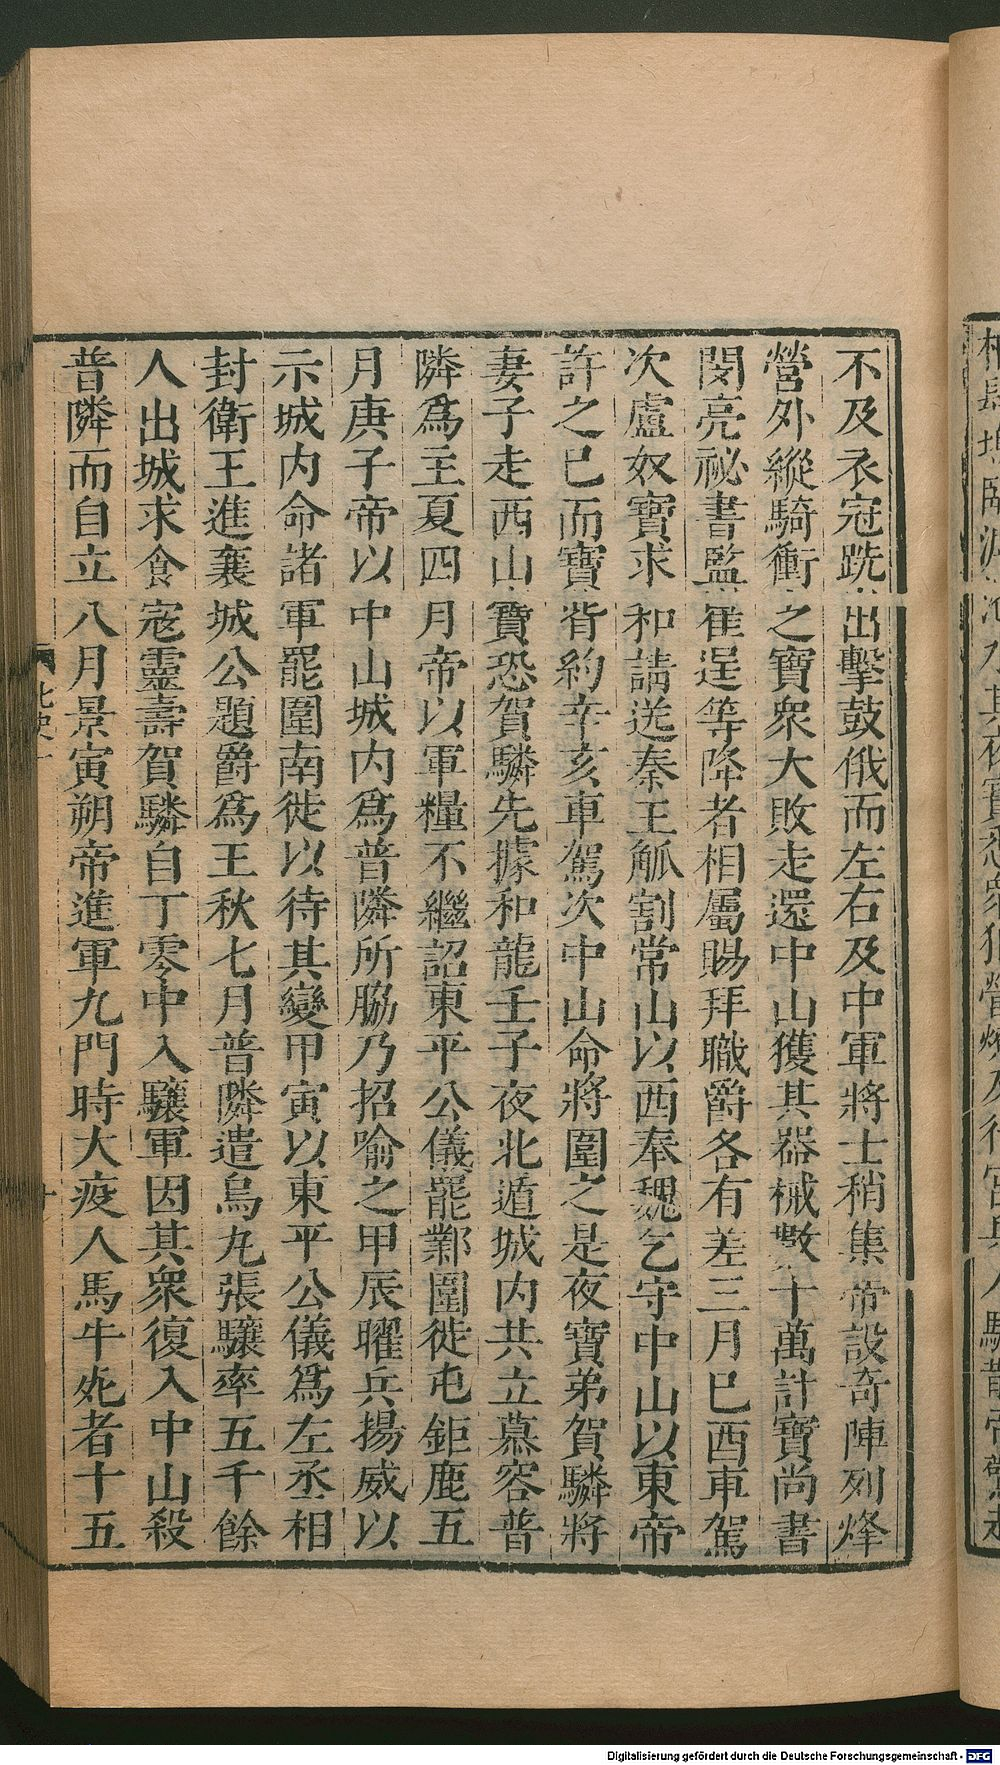 不及衣冠跣出擊鼓俄而左右及中軍將士稍集帝設奇陣列烽
營外縱騎衝之寶衆大敗走還中山獲其器械數十萬計寶尚書
閔亮祕書監崔逞等降者相屬賜拜職爵各有差三月巳酉車駕
次盧奴寶求和請送秦王觚割常山以西奉魏乞守中山以東帝
許之已而寶背約辛亥車駕次中山命將圍之是夜寶弟賀驎將
妻子走西山寶恐賀驎先據和龍壬子夜北遁城内共立慕容普
隣爲主夏四月帝以軍糧不繼詔東平公儀罷鄴圍徙屯鉅鹿五
月庚子帝以中山城内爲普隣所脇乃招喻之甲辰曜兵揚威以
示城内命諸軍罷圍南徙以待其變甲寅以東平公儀爲左丞相
封衛王進襄城公題爵爲王秋七月普隣遣烏丸張驤率五千餘
人出城求食寇靈壽賀驎自丁零中入驤軍因其衆復入中山殺
普隣而自立八月景寅朔帝進軍九門時大疫人馬牛死者十五
北史一
Digitalisierung gefördert durch die Deutsche Forschungsgemeinschaft - DFG